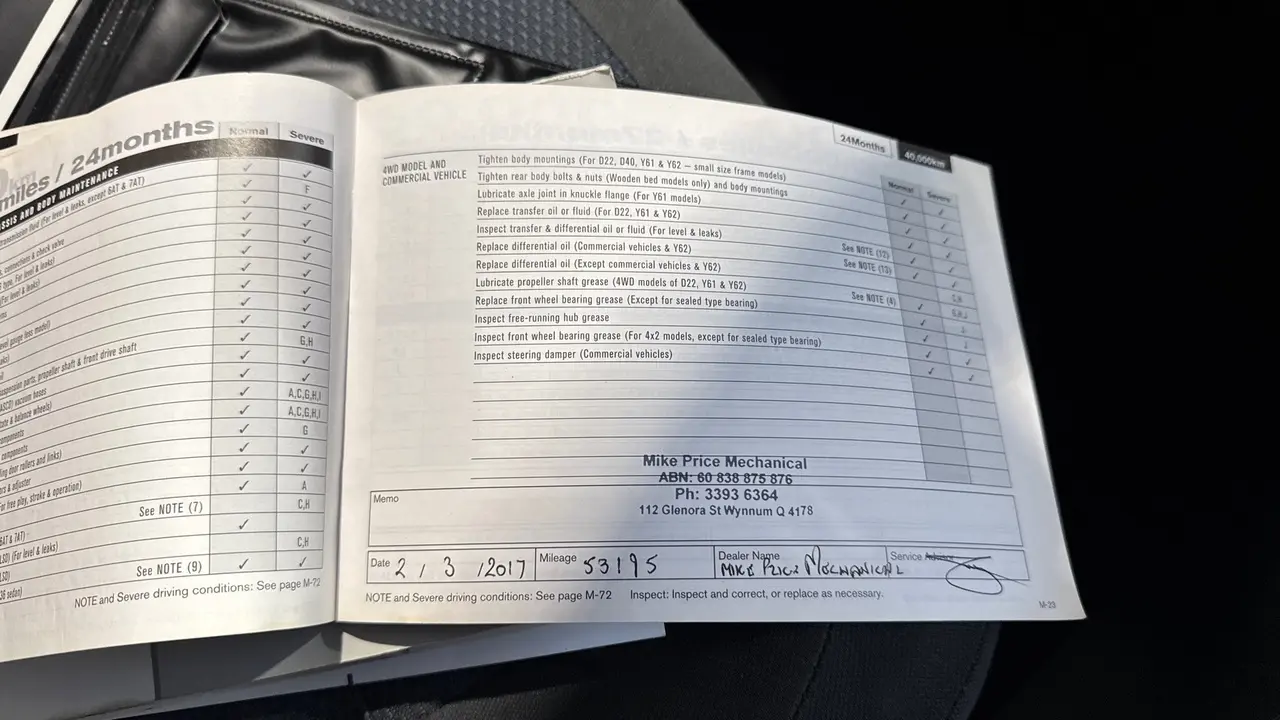 km
miles / 24months
Normal
Severe
CHASSIS AND BODY MAINTENANCE
transmission fluid (For level & leaks, except 6AT & 7AT)
F
, connections & check valve
type, For level & leaks)
(For level & leaks)
level gauge less model)
G,H
suspension parts, propeller shaft & front drive shaft
vacuum hoses
A,C,G,H,I
& balance wheels)
A,C,G,H,I
components
G
components
door rollers and links)
& adjuster
A
For free play, stroke & operation)
See NOTE (7)
C,H
6AT & 7AT)
LSD) (For level & leaks)
C,H
LSD)
See NOTE (9)
sedan)
NOTE and Severe driving conditions: See page M-72
24Months
40,000km
4WD MODEL AND
COMMERCIAL VEHICLE
Normal
Severe
Tighten body mountings (For D22, D40, Y61 & Y62 – small size frame models)
Tighten rear body bolts & nuts (Wooden bed models only) and body mountings
Lubricate axle joint in knuckle flange (For Y61 models)
Replace transfer oil or fluid (For D22, Y61 & Y62)
Inspect transfer & differential oil or fluid (For level & leaks)
Replace differential oil (Commercial vehicles & Y62) See NOTE (12)
Replace differential oil (Except commercial vehicles & Y62) See NOTE (13)
Lubricate propeller shaft grease (4WD models of D22, Y61 & Y62)
Replace front wheel bearing grease (Except for sealed type bearing) See NOTE (4)
Inspect free-running hub grease
Inspect front wheel bearing grease (For 4x2 models, except for sealed type bearing)
Inspect steering damper (Commercial vehicles)
Mike Price Mechanical
ABN: 60 838 875 876
Ph: 3393 6364
112 Glenora St Wynnum Q 4178
Memo
Date 2 / 3 / 2017 Mileage 53195 Dealer Name MIKE PRICE MECHANICAL Service Advisor
NOTE and Severe driving conditions: See page M-72 Inspect: Inspect and correct, or replace as necessary.
M-23